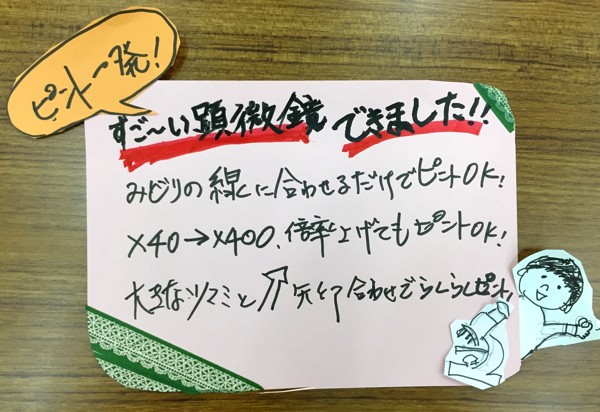 ピント一発!
すご〜い顕微鏡できました!!
みどりの線に合わせるだけでピントOK!
×40→×400、倍率上げてもピントOK!
大きなツマミと矢印合わせでらくらくピント!